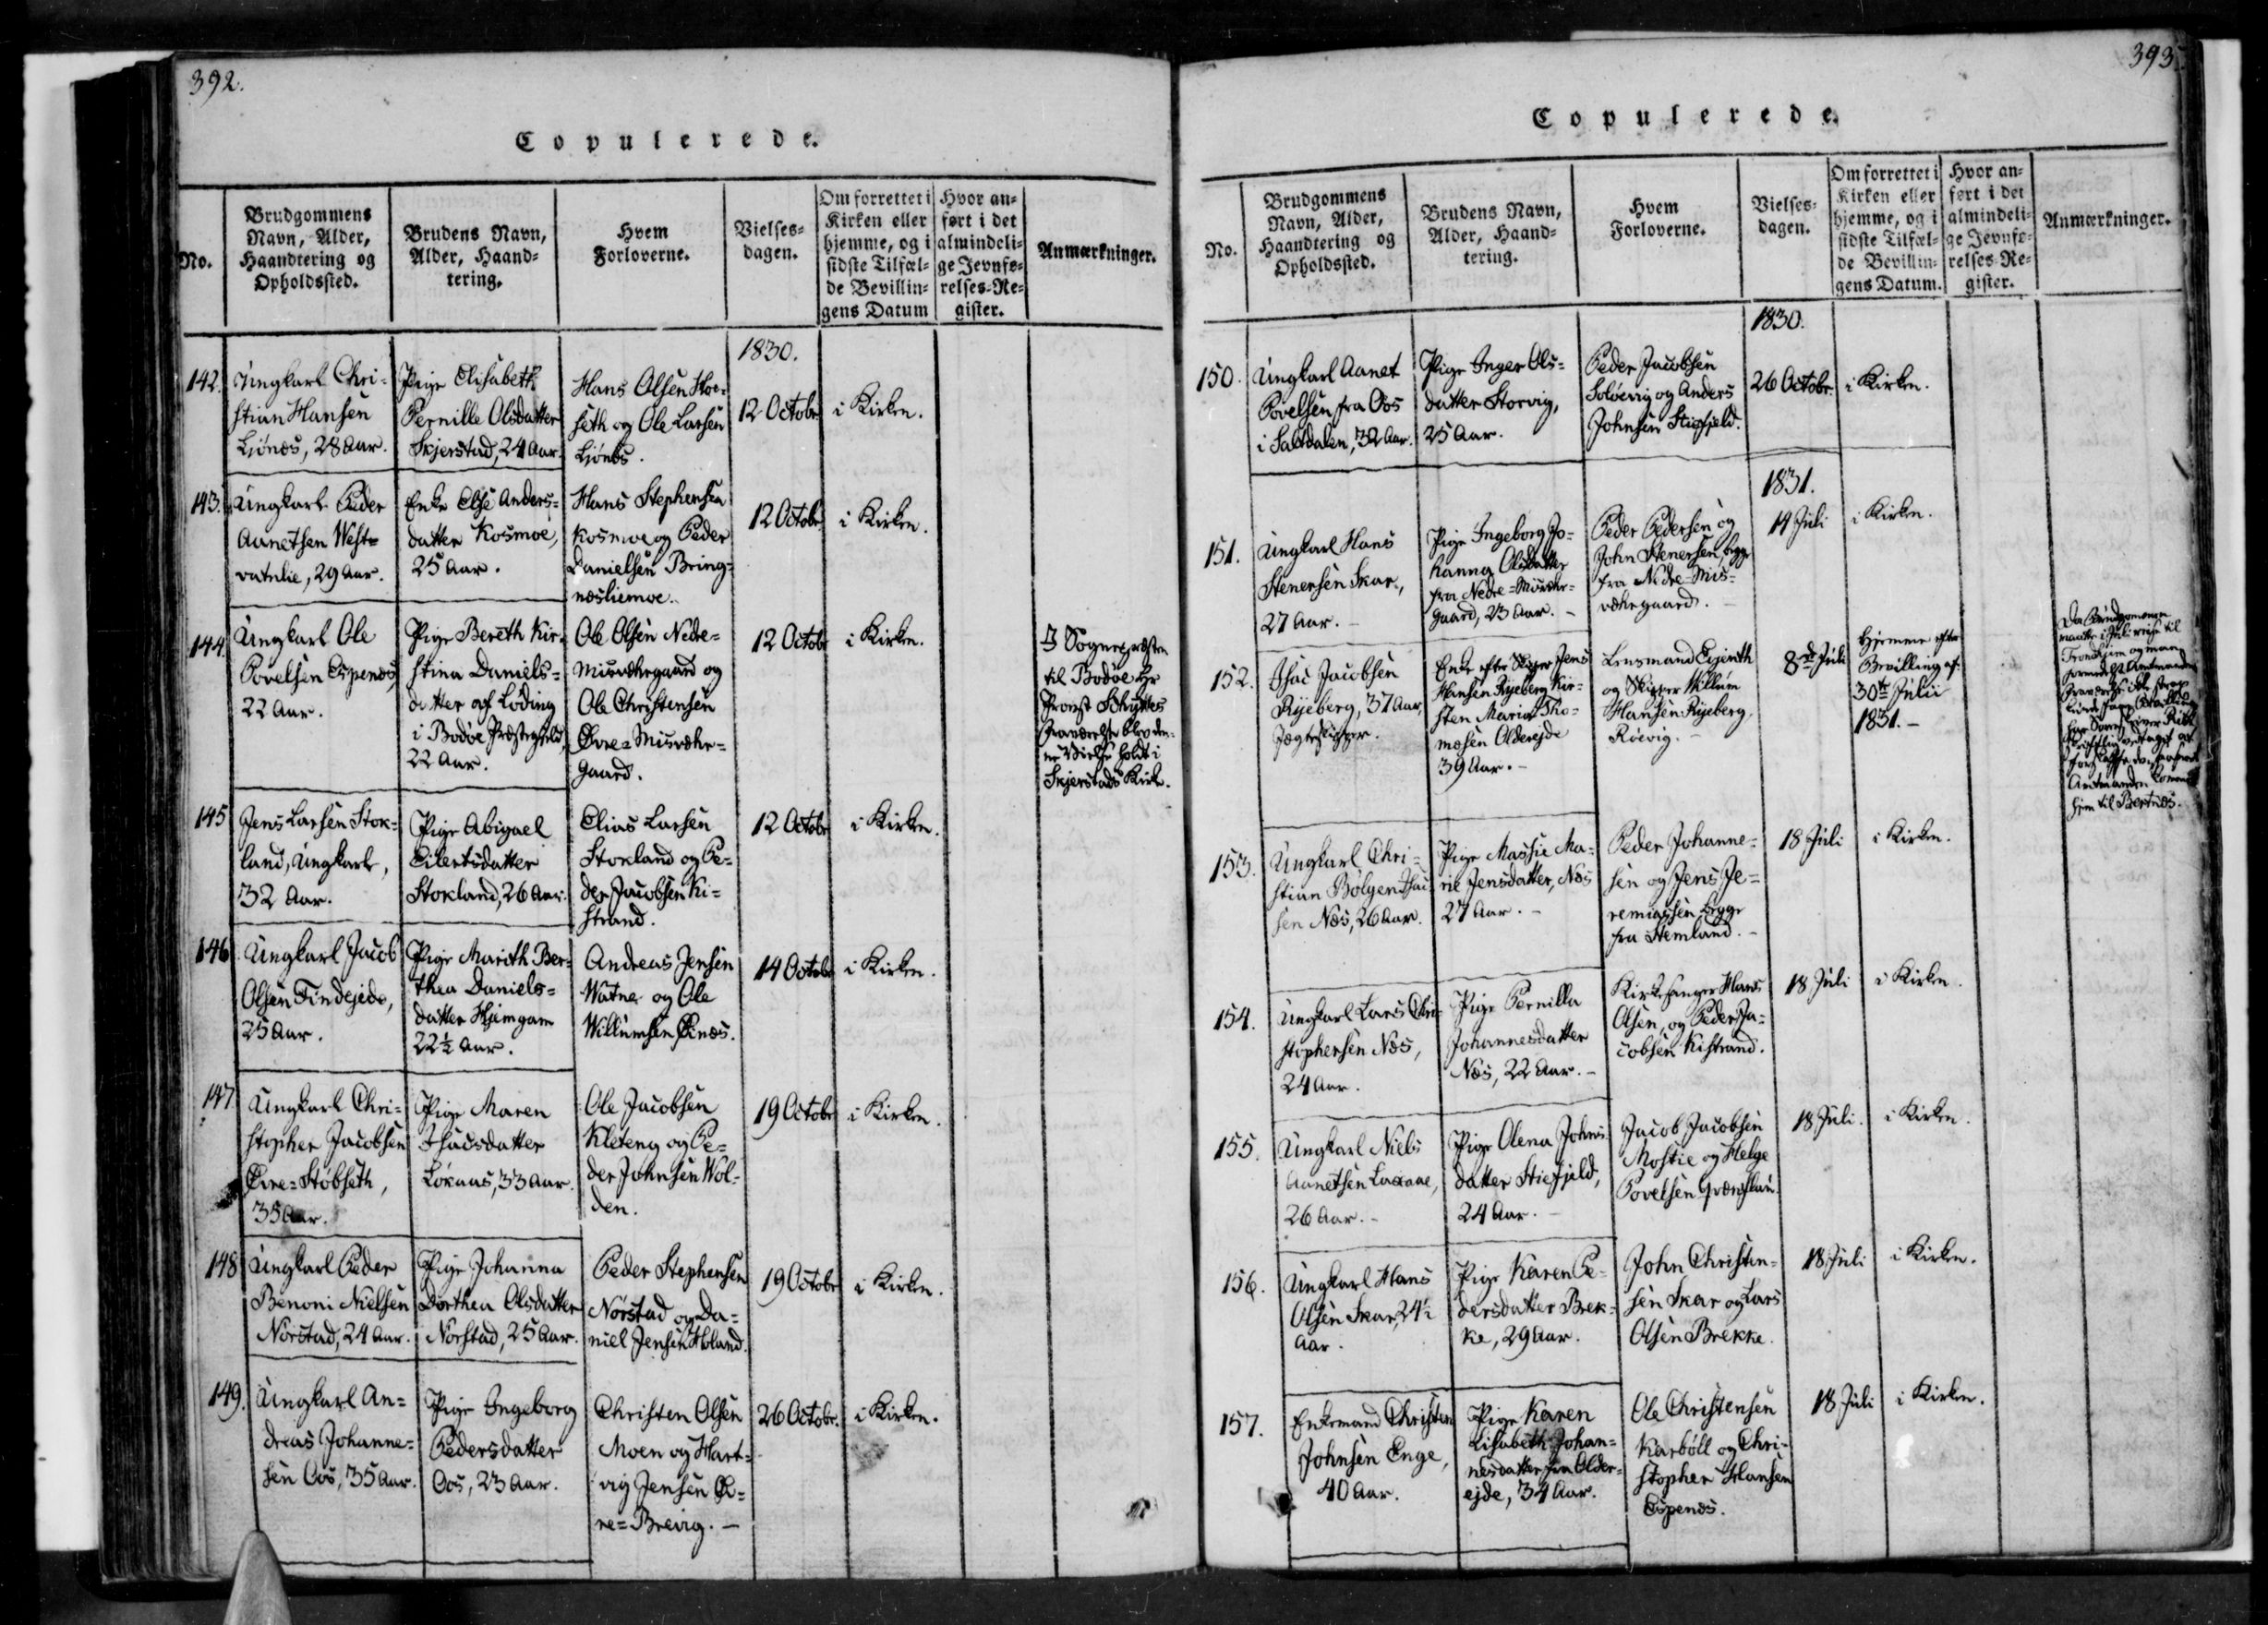 392.
Copulerede.
No.
Brudgommens
Navn, Alder,
Haandtering og
Opholdssted.
Brudens Navn,
Alder, Haand-
tering.
Hvem
Forloverne.
Vielses-
dagen.
Om forrettet i
Kirken eller
hjemme, og i
sidste Tilfæl-
de Bevillin-
gens Datum
Hvor an-
ført i det
almindeli-
ge Jevnfø-
relses-Re-
gister.
Anmærkninger.
1830.
142.
Ungkarl Chri-
stian Hansen
Ljönes, 28 Aar.
Pige Elisabeth
Pernille Olsdatter
Skjerstad, 24 Aar
Hans Olsen Hoe-
seth og Ole Larsen
Ljönes.
12 Octobr
i Kirken.
143.
Ungkarl Peder
Aanetsen West-
vatnlie, 29 Aar.
Enke Else Anders-
datter Kosmoe,
25 Aar.
Hans Stephensen
Kosmoe og Peder
Danielsen Bring-
nesliemoe.
12 Octobr
i Kirken.
144
Ungkarl Ole
Povelsen Espenes,
22 Aar.
Pige Bereth Kir-
stina Daniels-
datter af Löding
i Bodöe Præstegjeld,
22 Aar.
Ole Olsen Nedre-
Misværgaard og
Ole Christensen
Övre-Misvær-
gaard.
12 Octobr
i Kirken.
I Sognepræsten
til Bodöe Hr
Provst Schyttes
Fraværelse blev den-
ne Vielse holdt i
Skjerstads Kirke.
145
Jens Larsen Stok-
land, Ungkarl,
32 Aar.
Pige Abigael
Eilertsdatter
Stokland, 26 Aar.
Elias Larsen
Stokland og Pe-
der Jacobsen Ki-
strand.
12 Octobr
i Kirken.
146
Ungkarl Jacob
Olsen Findejde,
25 Aar.
Pige Marith Ber-
thea Daniels-
datter Hjemgam
22½ Aar.
Andreas Jensen
Watne og Ole
Willumsen Öines.
14 Octobr
i Kirken.
147
Ungkarl Chri-
stopher Jacobsen
Övre-Stöbseth,
35 Aar.
Pige Maren
Isacsdatter
Löknus, 33 Aar.
Ole Jacobsen
Kleteng og Pe-
der Johnsen Wol-
den.
19 Octobr
i Kirken.
148
Ungkarl Peder
Benoni Nielsen
Norstad, 24 Aar.
Pige Johanna
Dorthea Olsdatter
Norstad, 25 Aar.
Peder Stephensen
Norstad og Da-
niel Jensen Holand.
19 Octobr
i Kirken.
149.
Ungkarl An-
dreas Johanne-
sen Oos, 35 Aar.
Pige Ingeborg
Pedersdatter
Oos, 23 Aar.
Christen Olsen
Moen og Hart-
vig Jensen Öv-
re-Breivig. —
26 Octobr.
i Kirken.
393.
Copulerede.
No.
Brudgommens
Navn, Alder,
Haandtering og
Opholdssted.
Brudens Navn,
Alder, Haand-
tering.
Hvem
Forloverne.
Vielses-
dagen.
Om forrettet i
Kirken eller
hjemme, og i
sidste Tilfæl-
de Bevillin-
gens Datum.
Hvor an-
ført i det
almindeli-
ge Jevnfø-
relses-Re-
gister.
Anmærkninger.
1830.
150.
Ungkarl Aanet
Povelsen fra Oos
i Saltdalen, 32 Aar.
Pige Inger Ols-
datter Storvig,
25 Aar.
Peder Jacobsen
Solöevig og Anders
Johnsen Stiefjeld.
26 Octobr.
i Kirken.
1831.
151.
Ungkarl Hans
Stenersen Skar,
27 Aar. -
Pige Ingeborg Jo-
hanna Olsdatter
fra Nedre-Misvær-
gaard, 23 Aar. -
Peder Pedersen og
John Stenersen, begge
fra Nedre-Mis-
værgaard. -
14 Juli
i Kirken.
152.
Isac Jacobsen
Rijeberg, 37 Aar,
Jægteskipper.
Enke efter Skipper Jens
Hansen Rijeberg Kir-
sten Maria Tho-
mesen Olderejde
39 Aar. -
Lensmand Ejinth
og Skipper Willum
Hansen Rijeberg
Röevig. -
8de Juli
Hjemme efter
Bevilling af
30te Julii
1831. -
Da Brudgommen
maatte i Juli reise til
Trondhjem og man
formedelst Amtmandens
Fraværelse ikke strax
Amtmanden
hjem til Bertnes.
153.
Ungkarl Chri-
stian Bolgen Isac-
sen Næs, 26 Aar.
Pige Massie Ma-
rie Jensdatter, Næs
27 Aar. -
Peder Johanne-
sen og Jens Je-
remiassen begge
fra Stemland. -
18 Juli
i Kirken.
154.
Ungkarl Lars Chri-
stophersen Næs,
24 Aar.
Pige Pernilla
Johannesdatter
Næs, 22 Aar. -
Kirkesanger Hans
Olsen, og Peder Ja-
cobsen Kistrand.
18 Juli
i Kirken.
155.
Ungkarl Niels
Aanetsen Laxaae,
26 Aar. -
Pige Olena Johns-
datter Stiefjeld,
24 Aar. -
Jacob Jacobsen
Mostie og Helge
Povelsen Grönslau.
18 Juli.
i Kirken.
156.
Ungkarl Hans
Olsen Skar, 24½
Aar.
Pige Karen Pe-
dersdatter Brek-
ke, 29 Aar.
John Christen-
sen Skar og Lars
Olsen Brekke.
18 Juli
i Kirken.
157.
Enkemand Christen
Johnsen Enge,
40 Aar.
Pige Karen
Lisabeth Johan-
nesdatter fra Older-
ejde, 34 Aar.
Ole Christensen
Karböll og Chri-
stopher Hansen
Espenes.
18 Juli
i Kirken.